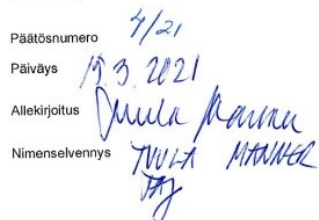 Päätösnumero 4/21
Päiväys 19.3.2021
Allekirjoitus Tuula Manner
Nimenselvennys TUULA MANNER